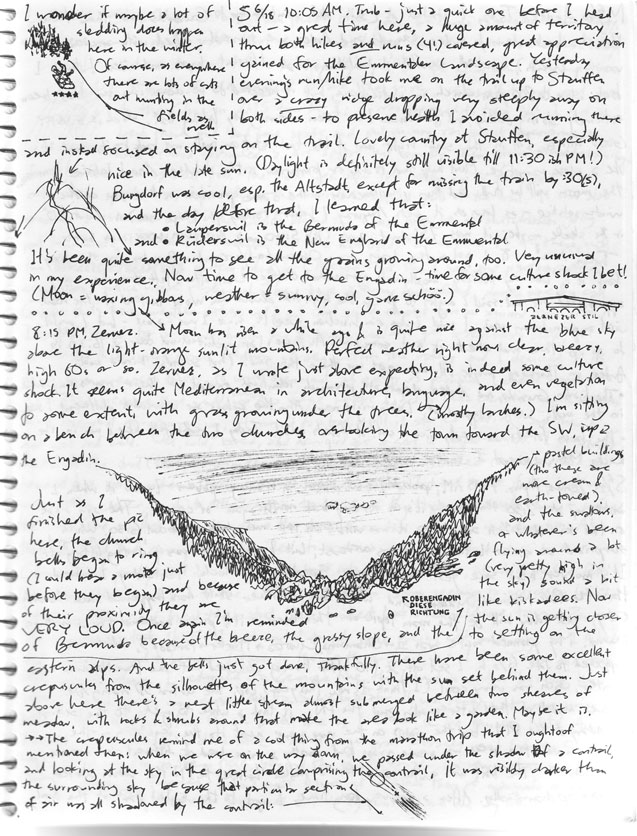 I wonder if maybe a lot of
sledding does happen
here in the winter.
Of course, as everywhere
there are lots of cats
out hunting in the
fields as
well.
5 6/18 10:05 AM. Trub - just a quick one before I head
out - a great time here, a huge amount of territory
thru both hikes and runs (4!) covered, great appreciation
gained for the Emmentaler landscape. Yesterday
evening's run/hike took me on the trail up to Stauffen
over a crazy ridge dropping very steeply away on
both sides - to preserve health I avoided running there
and instead focused on staying on the trail. Lovely country at Stauffen, especially
nice in the late sun. (Daylight is definitely still visible till 11:30 ish PM!)
Burgdorf was cool, esp. the Altstadt, except for missing the train by :30(s),
and the day before that, I learned that:
• Lauperswil is the Bermuda of the Emmental
and • Rüderswil is the New England of the Emmental
It's been quite something to see all the grains growing around, too. Very unusual
in my experience. Now time to get to the Engadin - time for some culture shock I bet!
(Moon = waxing gibbous, weather = sunny, cool, ganz schön.)
8:15 PM, Zernez. Moon has risen a while ago & is quite nice against the blue sky
above the light-orange sunlit mountains. Perfect weather right now: clear, breezy,
high 60s or so. Zernez, as I wrote just above expecting, is indeed some culture
shock. It seems quite Mediterranean in architecture, language, and even vegetation
to some extent, with grass growing under the trees. (mostly larches.) I'm sitting
on a bench between the two churches, overlooking the town toward the SW, up
the Engadin.
Just as I
finished the pic
here, the church
bells began to ring
(I could hear a motor just
before they began) and because
of their proximity they are
VERY LOUD. Once again I'm reminded
of Bermuda because of the breeze, the grassy slope, and the
pastel buildings
(tho these are
more cream &
earth-toned),
and the swallows,
or whatever's been
flying around a lot
(very pretty high in
the sky) sound a bit
like kiskadees. Now
the sun is getting closer
to setting on the
OBERENGADIN
DIESE
RICHTUNG
eastern alps. And the bells just got done, thankfully. There have been some excellent
crepusculars from the silhouettes of the mountains with the sun set behind them. Just
above here there's a neat little stream almost submerged between two sheaves of
meadow, with rocks & shrubs around that make the area look like a garden. Maybe it is.
→→ The crepusculars remind me of a cool thing from the marathon trip that I oughtof
mentioned then: when we were on the way down, we passed under the shadow of a contrail,
and looking at the sky in the great circle comprising the contrail, it was visibly darker than
the surrounding sky because that particular section
of air was all shadowed by the contrail.